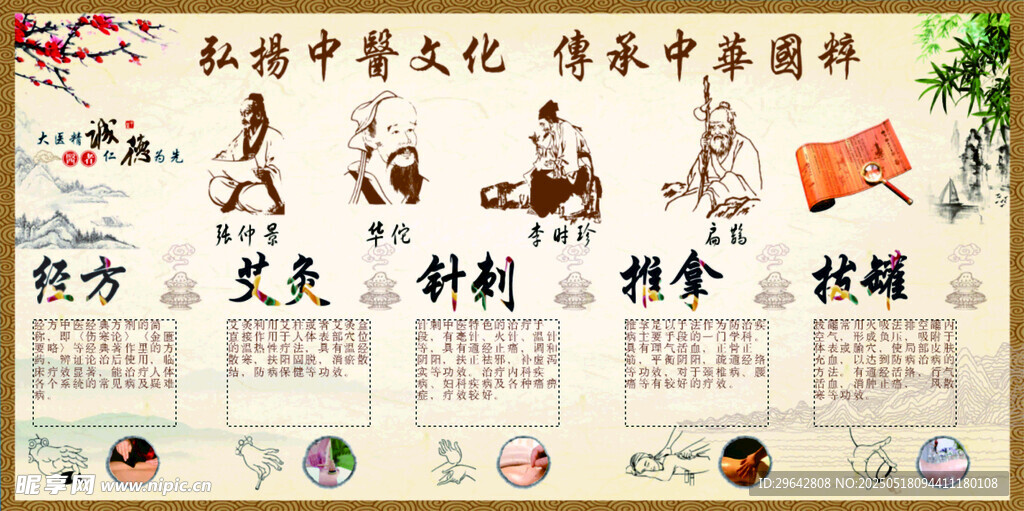 弘揚中醫文化 傳承中華國粹
大医精诚
醫者仁德为先
张仲景
华佗
李时珍
扁鹊
经方
艾灸
针刺
推拿
拔罐
经方中医经典方剂的简
称，即《伤寒论》《金匮
要略》等经典著作里的方
药，辨证论治后使用，临
床疗效显著，能治疗人体
各个系统的常见病及疑难
病。
艾灸利用艾在或者艾灸盒
直接作用于人体体表部位
的温热性疗法，具有温经
散寒、扶阳固脱、消瘀散
结，防病保健等功效。
针刺中医特色的治疗手
段，有毫针、火针、温针
等，具有通经止痛、调和
阴阳、扶正祛邪、补虚泻
实等功效。治疗内科疾
病、妇科疾病及各种痛费
症，疗效较好。
推拿是以手法作为防治疾
病主要手段的一门学科。
具有理气活血、正骨正
筋，平衡阴阳、疏通经络
等功效，对于颈椎病、腰
痛等有较好的疗效。
拔罐常用火吸法排空罐内
空气，形成负压，吸附于
体表或腧穴，使局部皮肤
充血，以达到防治病的
方法。有通经活络、行气
活血、消肿止痛、风散
寒等功效。
昵享网 www.nipic.cn
ID:29642808 NO:20250518094411180108